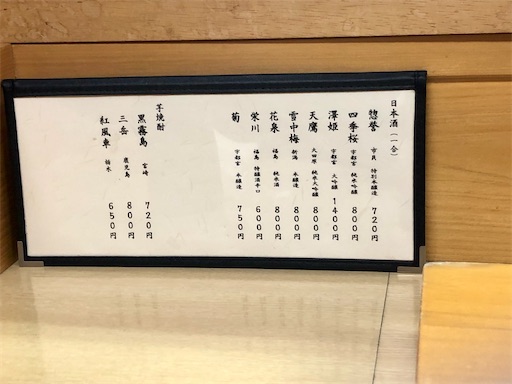 日本酒（一合）
惣誉 市貝 特別本醸造 720円
四季桜 宇都宮 純米吟醸 800円
澤姫 宇都宮 大吟醸 1400円
天鷹 大田原 純米大吟醸 800円
雪中梅 新潟 本醸造 800円
花泉 福島 純米酒 800円
榮川 福島 特醸酒辛口 600円
菊 宇都宮 本醸造 750円
芋焼酎
黒霧島 宮崎 720円
三岳 鹿児島 800円
紅風車 栃木 650円